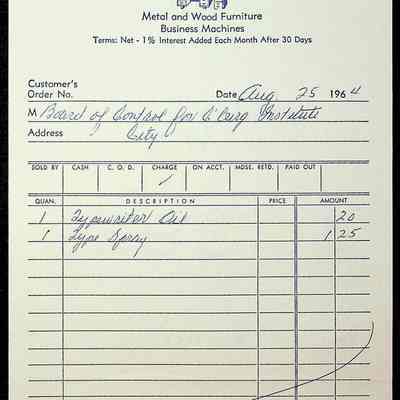 Metal and Wood Furniture
Business Machines
Terms: Net - 1% Interest Added Each Month After 30 Days
Customer's
Order No. Date Aug. 25 1964
M Board of Control for C'burg Institute
Address City
SOLD BY CASH C. O. D. CHARGE ON ACCT. MDSE. RETD. PAID OUT
✓
QUAN. DESCRIPTION PRICE AMOUNT
1 Typewriter Oil 20
1 Type Spray 1 25